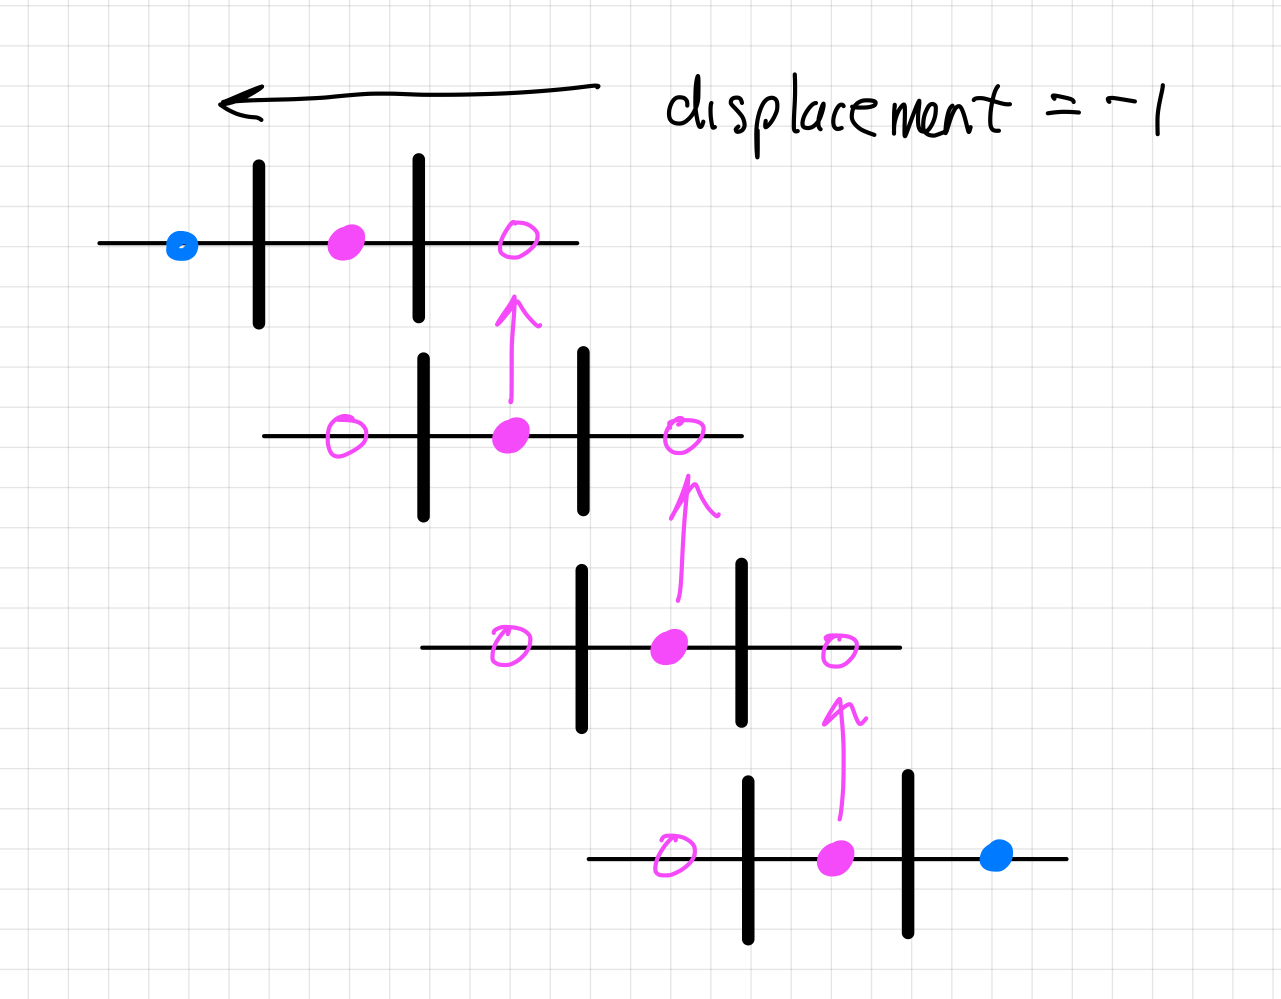 displacement = -1